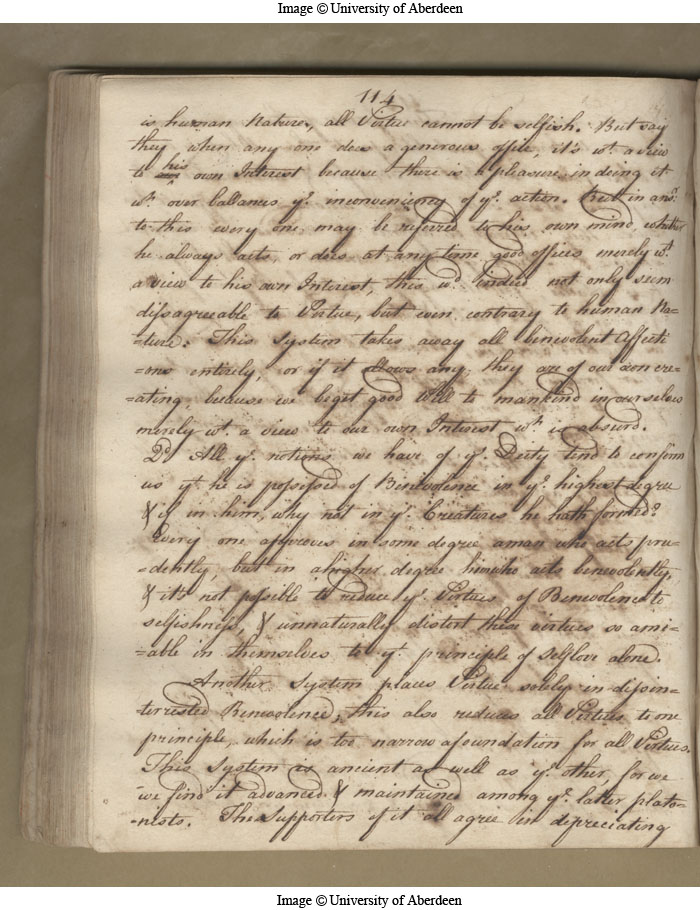 Image © University of Aberdeen
114
is human Nature, all Virtue cannot be selfish. But say
they, when any one does a generous office, it's wt. a view
to his own Interest because there is a pleasure in doing it
wh. over ballances ye. inconveniency of ye. action. But in ansr.
to this every one may be referred to his own mind, whither
he always acts, or does at any time good offices merely wt.
a view to his own Interest, this wd. indeed not only seem
dissagreeable to Virtue, but even contrary to human Na=
=ture. This System takes away all benevolent Affecti
=ons entirely, or if it allows any, they are of our own cre=
=ating, because we beget good Will to mankind in ourselves
merely wt. a view to our own Interest wh. is absurd.
2d. All ye. notions we have of ye. Deity tend to confirm
us yt. he is possessed of Benevolence in ye. highest degree
& if in him, why not in ye. Creatures he hath formed?
Every one approves in some degree a man who acts pru=
=dently, but in a higher degree him who acts benevolently,
& it's not possible to reduce ye. Virtues of Benevolence to
selfishness, & unnaturally distort these virtues so ami=
=able in themselves to ye. principle of selflove alone.
Another System places Virtue solely in disin=
=terrested Benevolence, this also reduces all Virtues to one
principle, which is too narrow a foundation for all Virtues.
This System is ancient as well as ye. other, for we
we find it advanced & maintained among ye. latter plato=
=nists. The Supporters of it all agree in depreciating
Image © University of Aberdeen